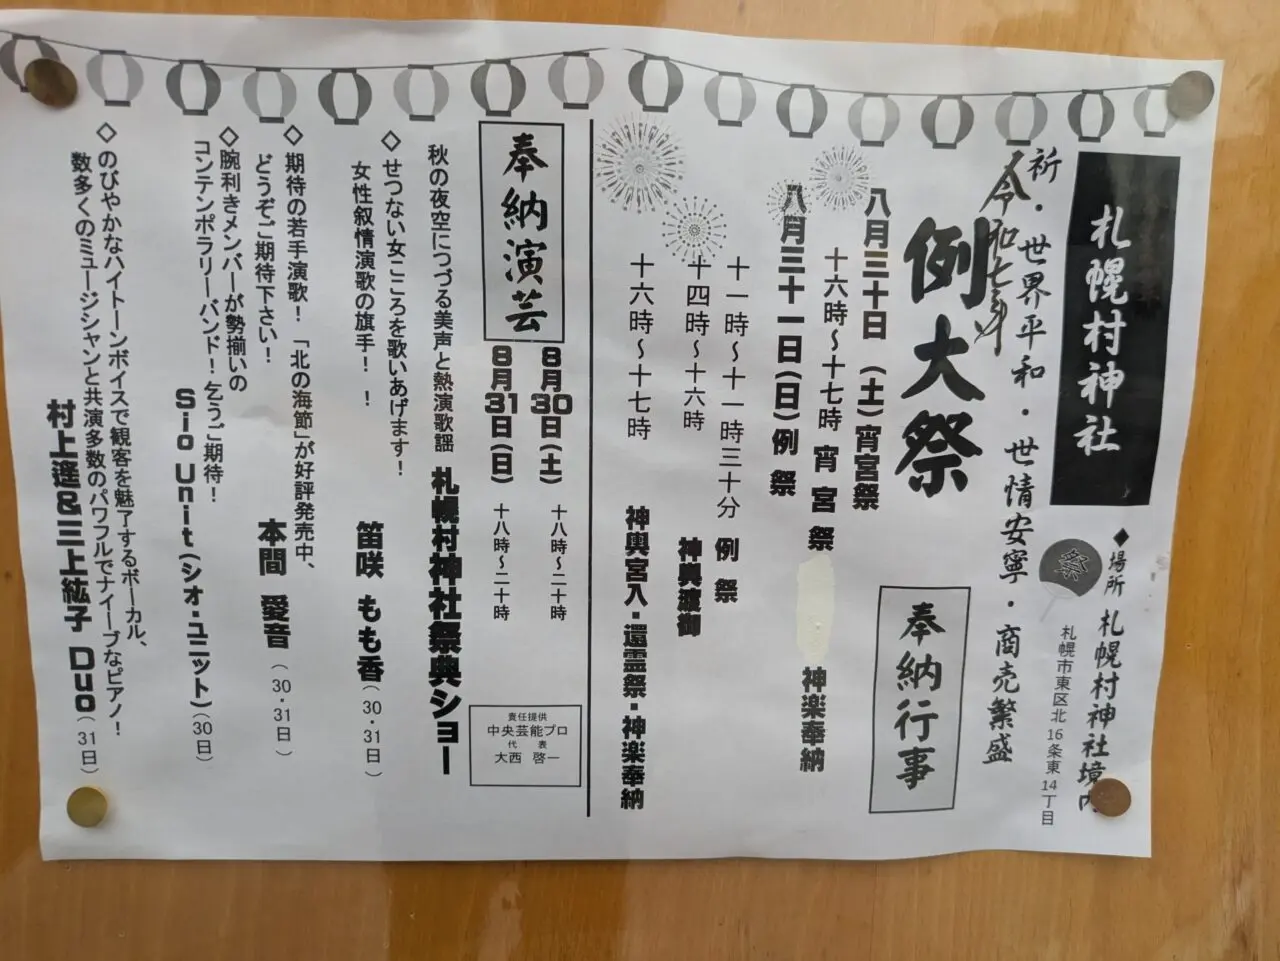 札幌村神社
◆場所 札幌村神社境内
札幌市東区北16条東14丁目
祭
祈・世界平和・世情安寧・商売繁盛
令和七年
例大祭
奉納行事
八月三十日(土)宵宮祭
十六時~十七時 宵宮祭 神楽奉納
八月三十一日(日)例祭
十一時~十一時三十分 例祭
十四時~十六時 神輿渡御
十六時~十七時 神輿宮入・還霊祭・神楽奉納
奉納演芸
8月30日(土) 十八時~二十時
8月31日(日) 十八時~二十時
責任提供
中央芸能プロ
代表
大西 啓一
秋の夜空につづる美声と熱演歌謡 札幌村神社祭典ショー
◇せつない女こころを歌いあげます!
女性叙情演歌の旗手!! 笛咲 もも香(30・31日)
◇期待の若手演歌!「北の海節」が好評発売中、
どうぞご期待下さい! 本間 愛音(30・31日)
◇腕利きメンバーが勢揃いの
コンテンポラリーバンド!乞うご期待!
Sio Unit(シオ・ユニット)(30日)
◇のびやかなハイトーンボイスで観客を魅了するボーカル、
数多くのミュージシャンと共演多数のパワフルでナイーブなピアノ!
村上遙&三上紘子 Duo(31日)